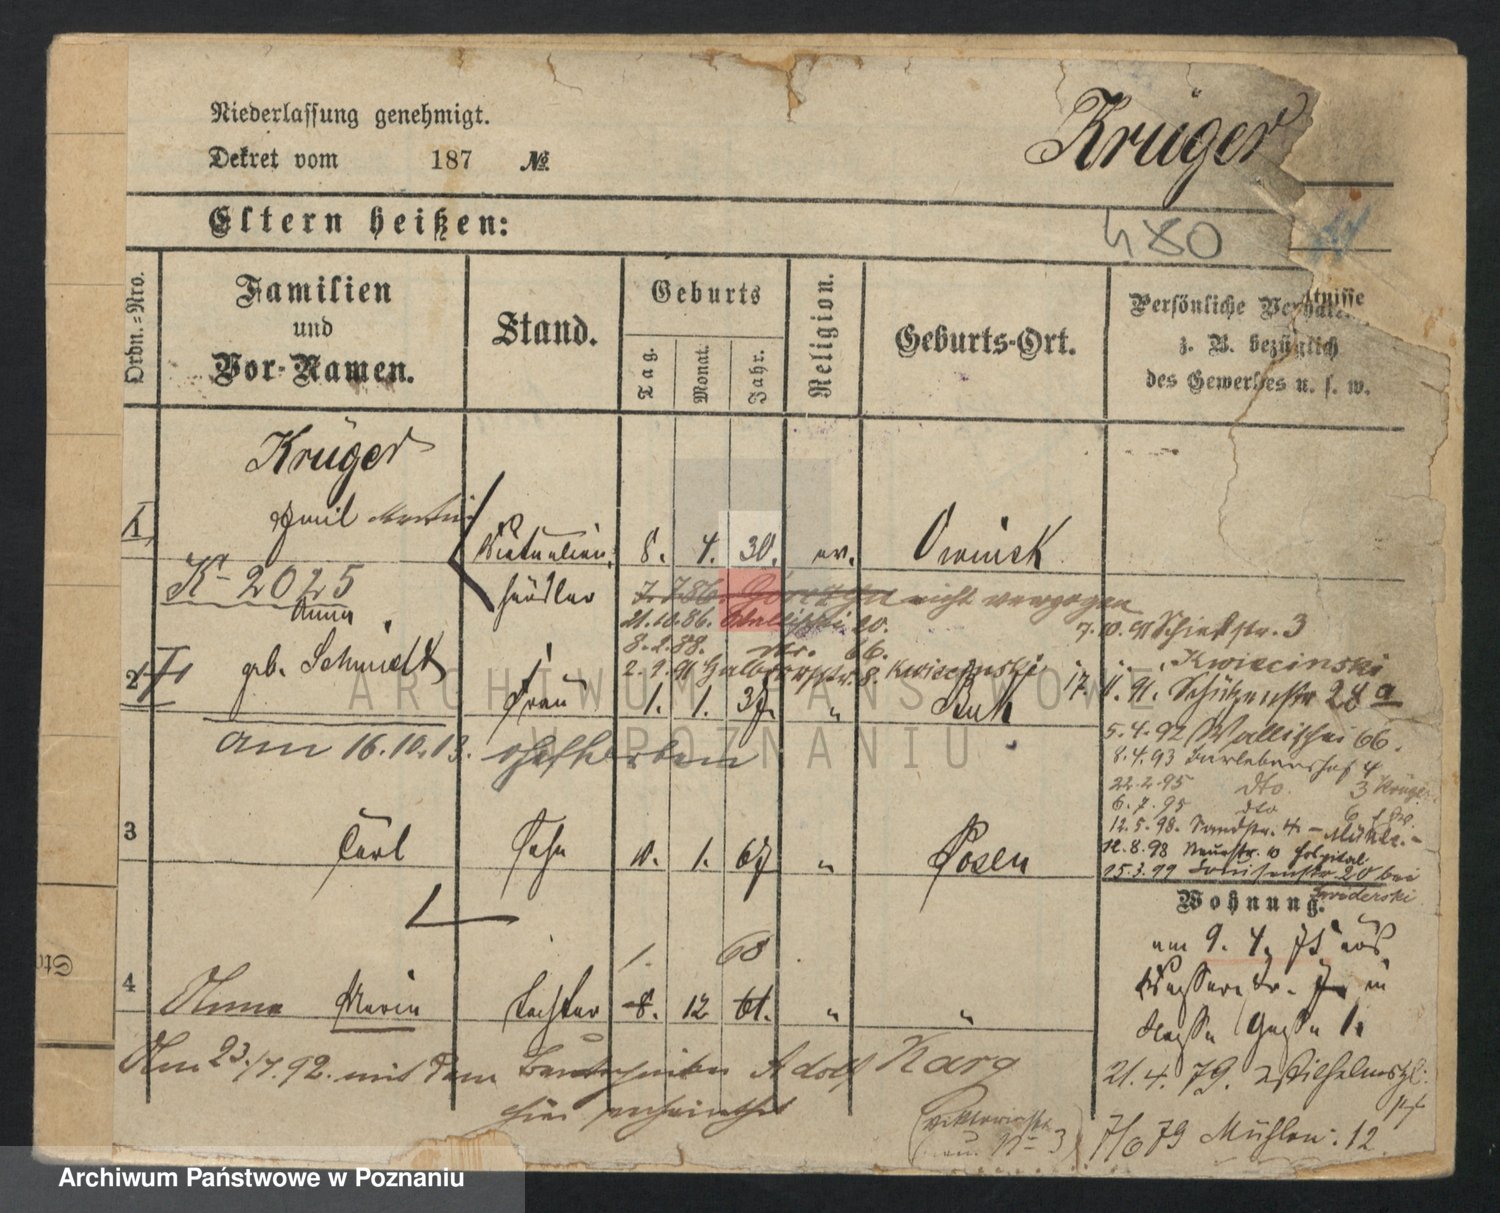 Niederlassung genehmigt.
Dekret vom 187 №
Krüger
Eltern heißen:
480
Ordn.-Nro.
Familien
und
Vor-Namen.
Stand.
Geburts
Tag.
Monat.
Jahr.
Religion.
Geburts-Ort.
Persönliche Verhältnisse
z. B. bezüglich
des Gewerbes u. s. w.
Krüger
1 Emil Victualien- 8. 4. 30. ev. Owinsk
händler
K 2025
7. 7 86. nicht verzogen
21.10.86. Wallischei 20.
8.2.88. dto. 66.
2.9.91 Halbdorfstr. 8. Kwiecinski
7.10.91 Schießstr. 3
Kwiecinski
17. 11. 91. Schützenstr 28a
Anna
2 geb. Schmidt Frau 1. 1. 37. " Buk
am 16.10.13. verstorben
5.4.92 Wallischei 66.
8.4.93 4
22.2.95 dto. 3 Krüger
6.7.95 dto 6
12.5.98. Sandstr. 4
12.8.98 Neuestr. 10 Hospital
15.3.99 Louisenstr 20 bei
3 Carl Sohn 10. 1. 67 " Posen
Wohnung.
am 9. 4. 75 aus
in
Gasse 1.
1. 68
4 Anna Maria Tochter 8. 12 61. " "
Am 23./7.92. mit dem Adolf Karg
hier verheirathet
21. 4. 79. Wilhelmspl.
(Viktoriastr.
3)
7/6 79 Mühlen. 12
ARCHIWUM PAŃSTWOWE
W POZNANIU
Archiwum Państwowe w Poznaniu